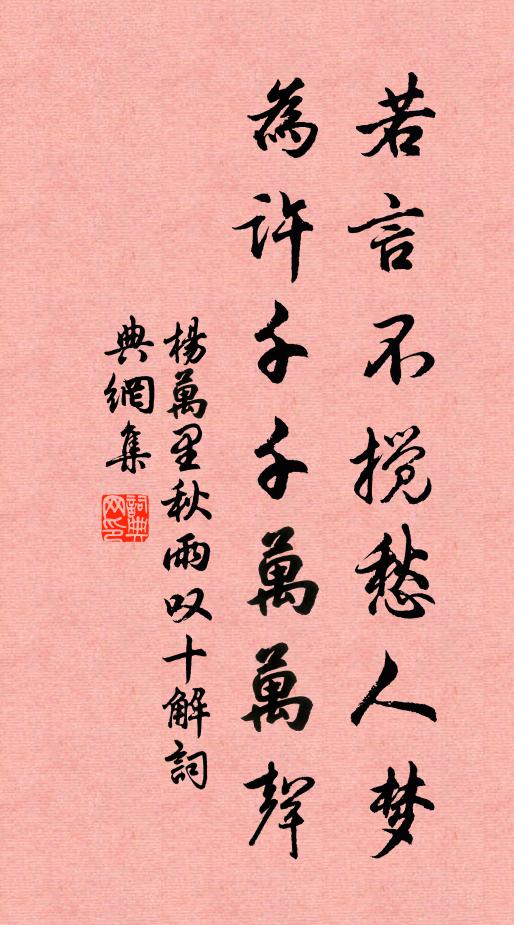 若言不搅愁人梦
為许千千萬萬聲
楊萬里秋雨叹十解詞
典網集
詞典网印